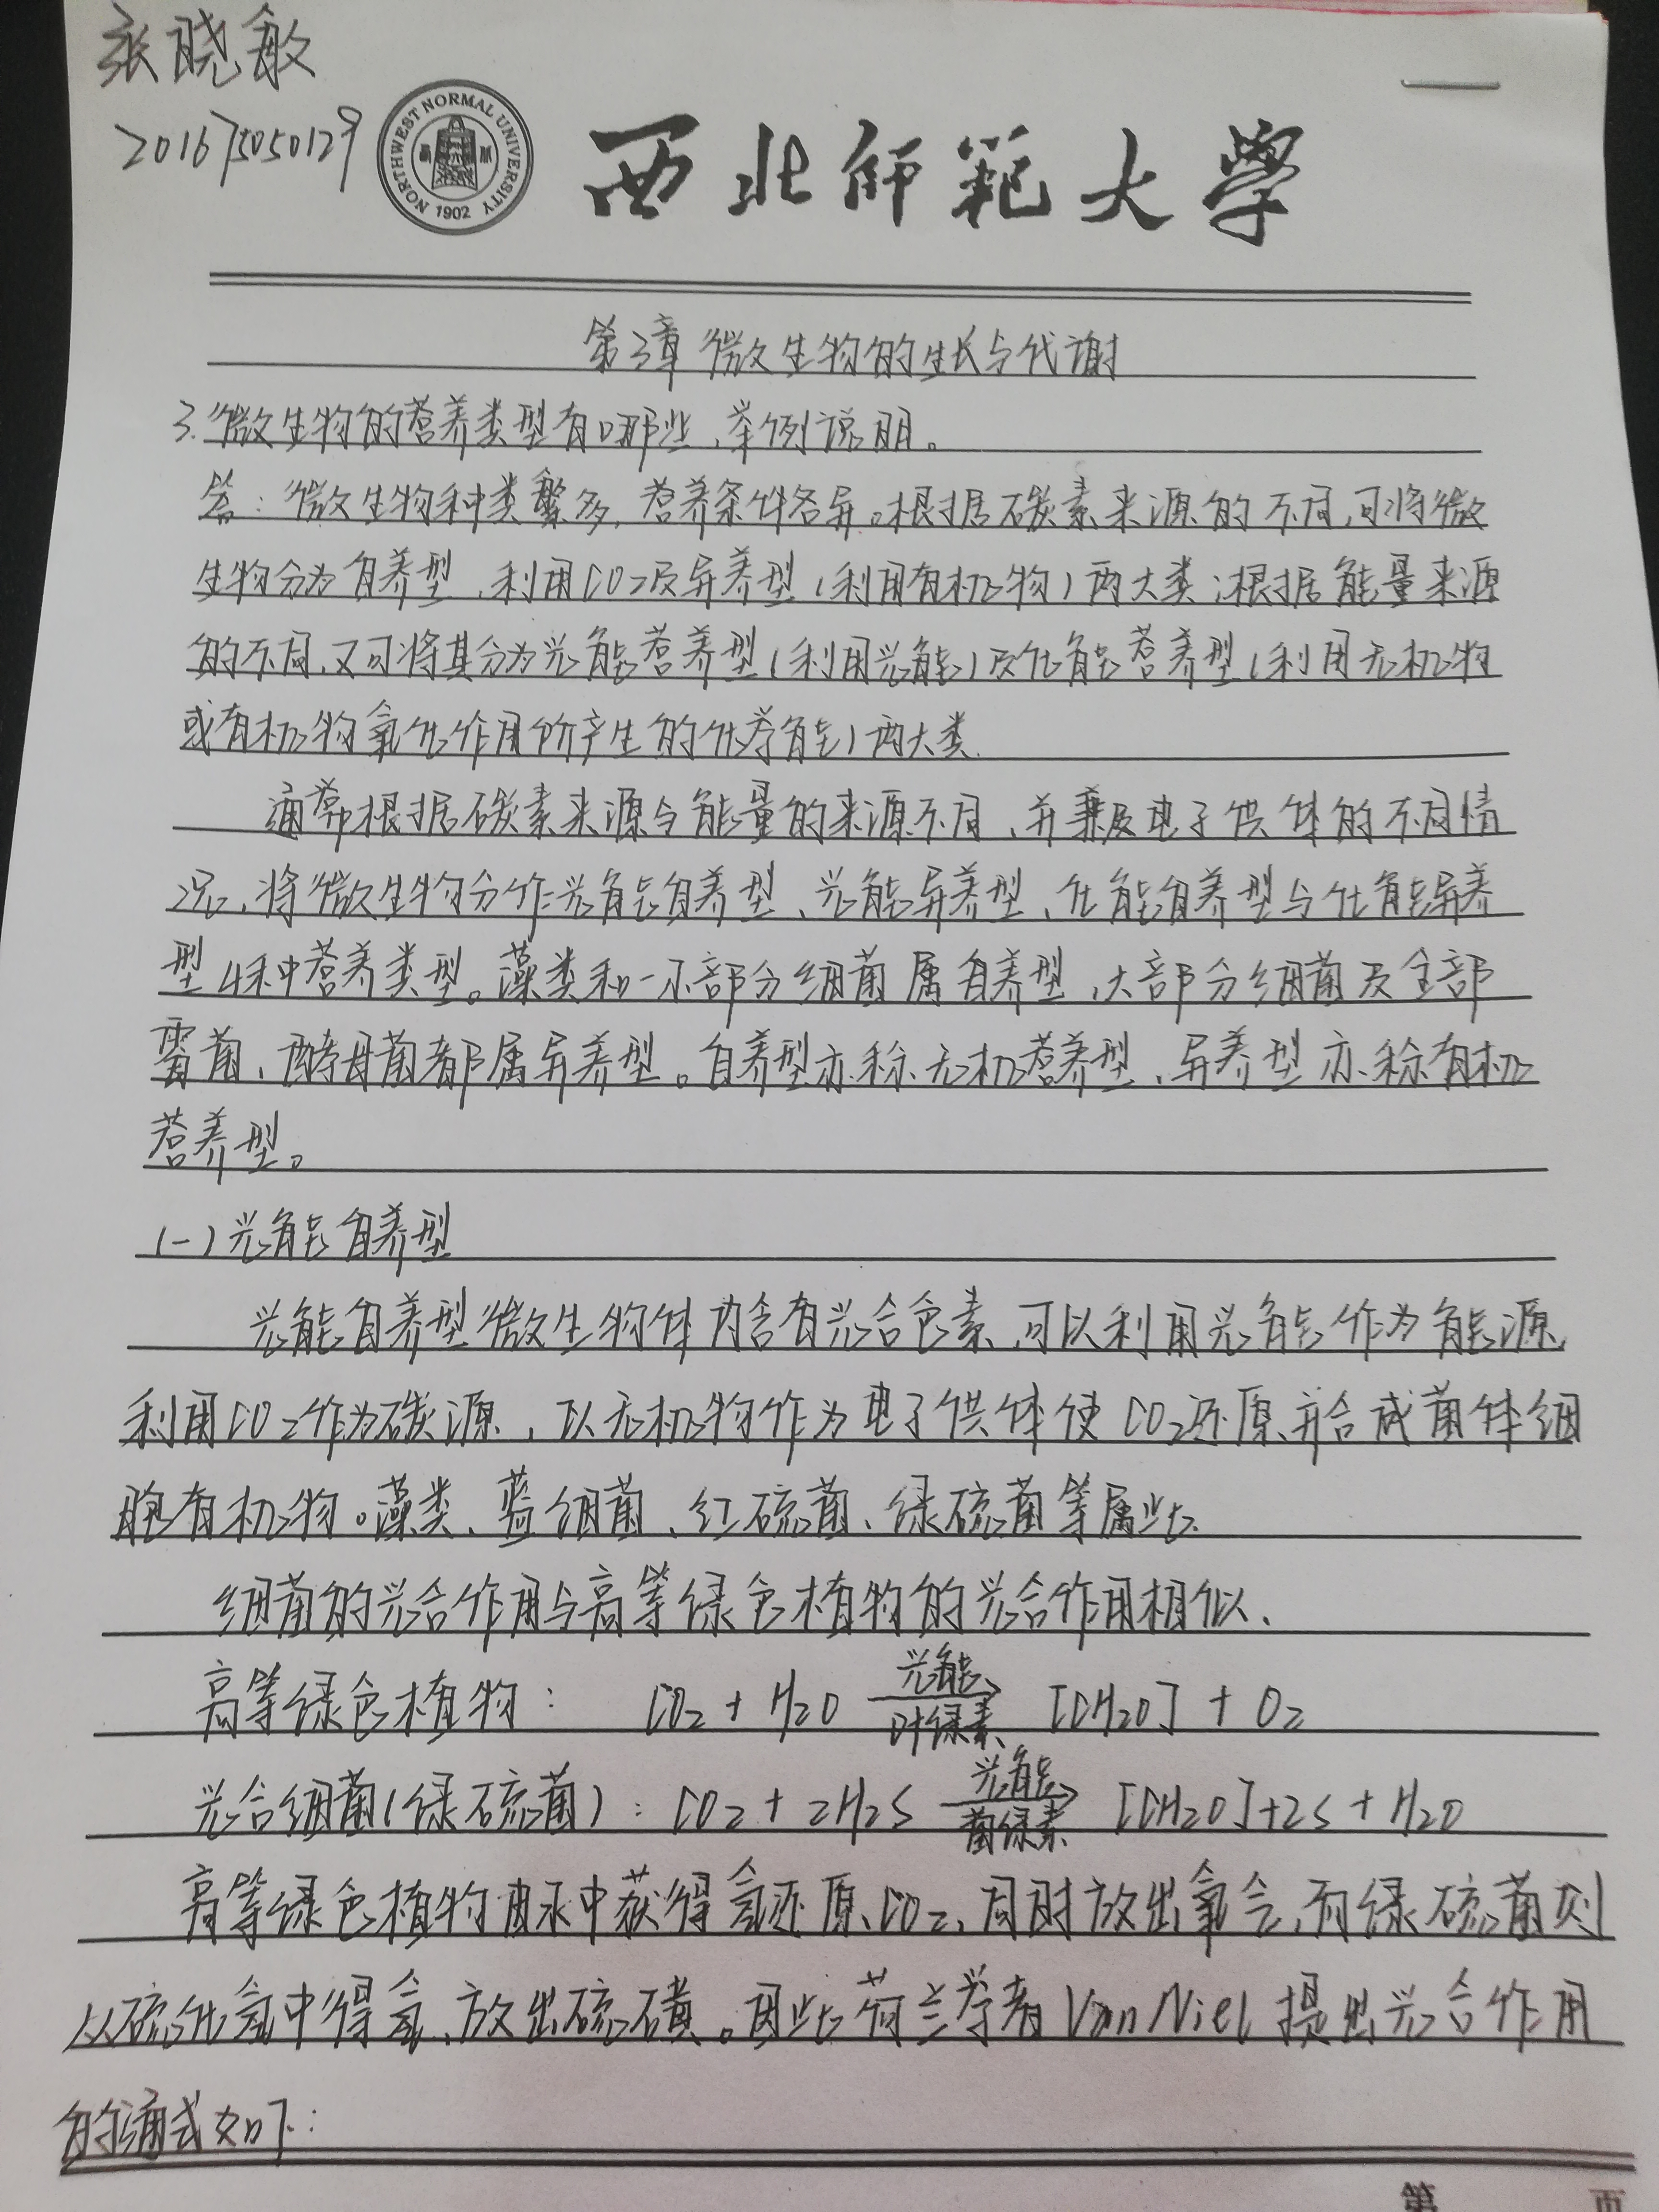 张晓敏
201675050129
NORTHWEST NORMAL UNIVERSITY
1902
西北师范大学
第3章 微生物的生长与代谢
3.微生物的营养类型有哪些,举例说明。
答:微生物种类繁多,营养条件各异。根据碳素来源的不同,可将微
生物分为自养型,利用CO2及异养型(利用有机物)两大类;根据能量来源
的不同,又可将其分为光能营养型(利用光能)及化能营养型(利用无机物
或有机物氧化作用所产生的化学能)两大类.
通常根据碳素来源与能量的来源不同,并兼及电子供体的不同情
况,将微生物分作:光能自养型、光能异养型、化能自养型与化能异养
型4种营养类型。藻类和一小部分细菌属自养型,大部分细菌及全部
霉菌、酵母菌都属异养型。自养型亦称无机营养型,异养型亦称有机
营养型。
(一)光能自养型
光能自养型微生物体内含有光合色素,可以利用光能作为能源,
利用CO2作为碳源,以无机物作为电子供体使CO2还原并合成菌体细
胞有机物。藻类、蓝细菌、红硫菌、绿硫菌等属此.
细菌的光合作用与高等绿色植物的光合作用相似.
高等绿色植物: CO2 + H2O 光能 叶绿素 [CH2O] + O2
光合细菌(绿硫菌): CO2 + 2H2S 光能 菌绿素 [CH2O]+2S + H2O
高等绿色植物由水中获得氢还原CO2,同时放出氧气,而绿硫菌则
从硫化氢中得氢,放出硫磺。因此荷兰学者Van Niel 提出光合作用
的通式如下:
第 页